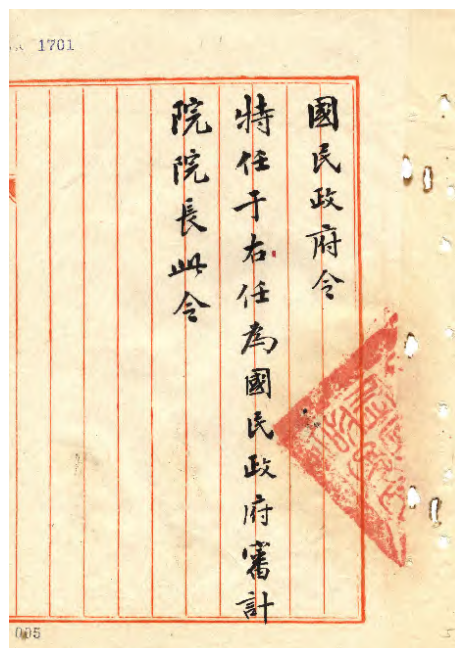 1701
國民政府令
特任于右任為國民政府審計
院院長此令
005